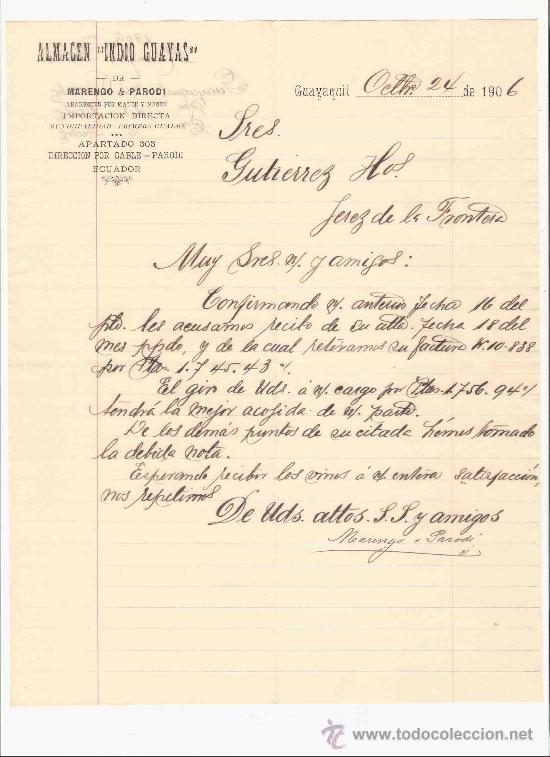 ALMACEN "INDIO GUAYAS"
DE
MARENGO & PARODI
ABARROTES POR MAYOR Y MENOR
IMPORTACION DIRECTA
MUNICIPALIDAD - PRIMERO GUAYAS
APARTADO 303
DIRECCION POR CABLE - PARODI
ECUADOR
Guayaquil Octbre 24 de 1906
Sres.
Gutierrez Hos.
Jerez de la Frontera
Muy Sres. n/. y amigos:
Confirmando n/. anterior fecha 16 del
pte. les acusamos recibo de su atta. fecha 18 del
mes ppdo, y de la cual retiramos su factura N. 10.838
por Ptas. 1.745.43 %
El giro de Uds. á n/. cargo por Ptas. 1.756.94 %
tendrá la mejor acojida de n/. parte.
De los demás puntos de su citada hémos tomado
la debida nota.
Esperando recibir los vinos á n/. entera satisfacción,
nos repetimos
De Uds. attos. S.S. y amigos
Marengo & Parodi
www.todocoleccion.net